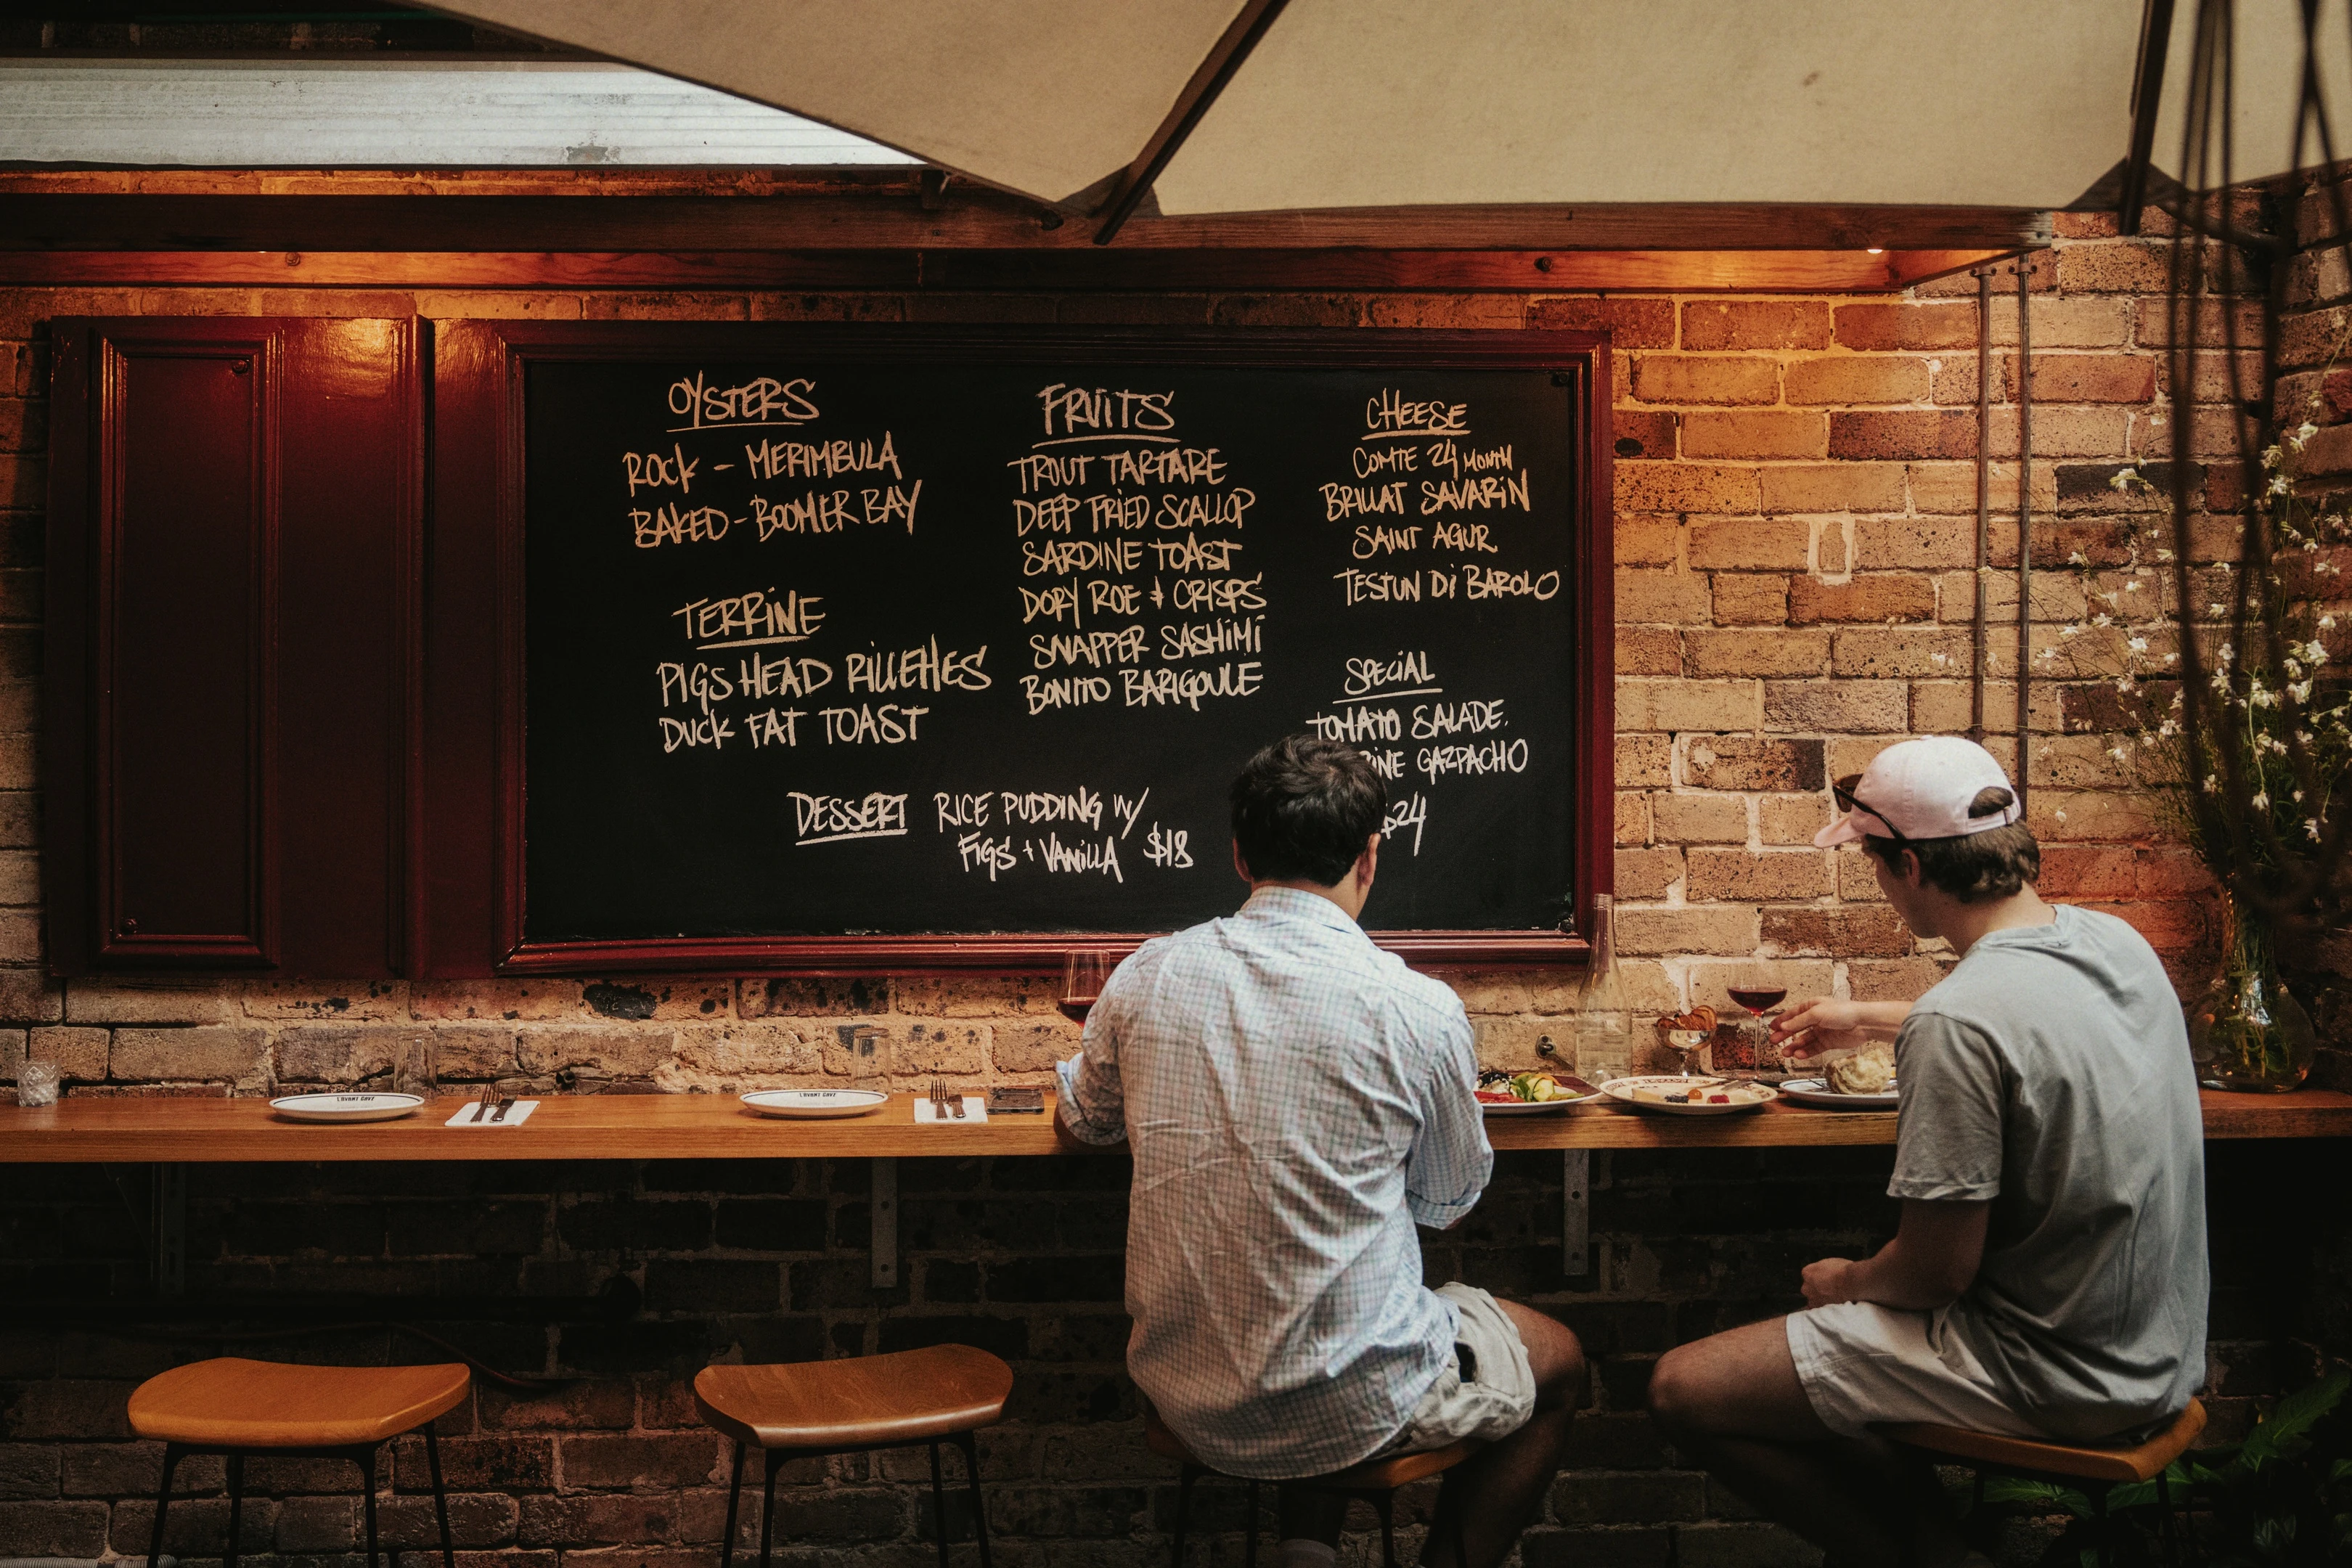 OYSTERS
ROCK - MERIMBULA
BAKED - BOOMER BAY
TERRINE
PIGS HEAD RILLETTES
DUCK FAT TOAST
FRUITS
TROUT TARTARE
DEEP FRIED SCALLOP
SARDINE TOAST
DORY ROE + CRISPS
SNAPPER SASHIMI
BONITO BARIGOULE
CHEESE
COMTE 24 MONTH
BRILLAT SAVARIN
SAINT AGUR
TESTUN DI BAROLO
SPECIAL
TOMATO SALADE.
GAZPACHO
$24
DESSERT RICE PUDDING W/
FIGS + VANILLA $18